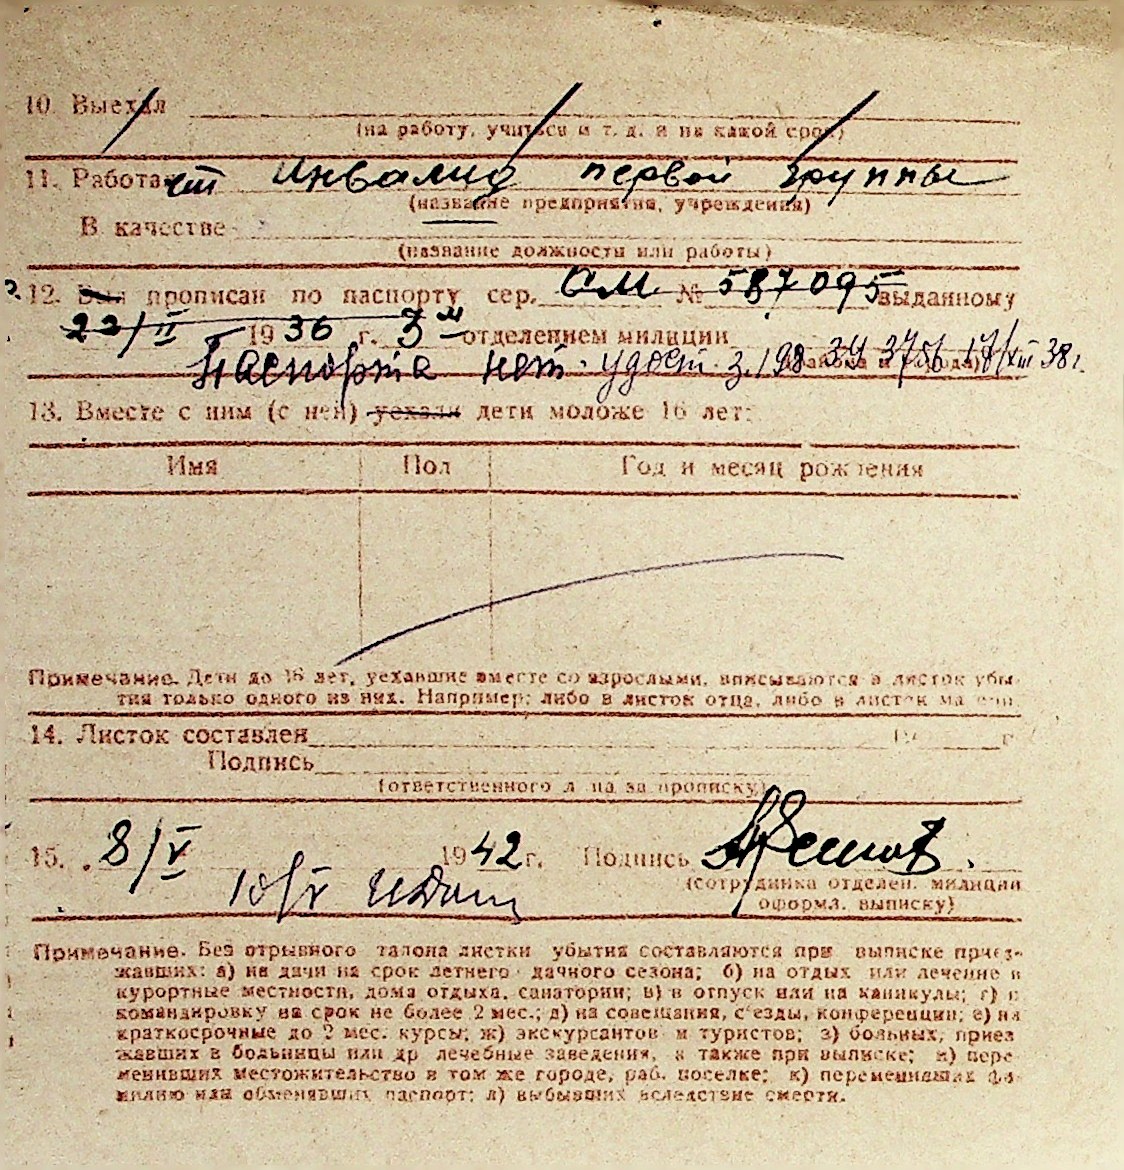 10. Выехал
(на работу, учиться и т. д. и на какой срок)
11. Работает Инвалид первой группы
(название предприятия, учреждения)
В качестве
(название должности или работы)
12. Был прописан по паспорту сер. СМ № 587095 выданному
22/II 1936 г. 3 м отделением милиции
Паспорта нет. удост. 3756 17/XII 38 г.
13. Вместе с ним (с ней) уехали дети моложе 16 лет:
Имя Пол Год и месяц рождения
Примечание. Дети до 16 лет, уехавшие вместе со взрослыми, вписываются в листок убы-
тия только одного из них. Например: либо в листок отца, либо в листок матери.
14. Листок составлен 19 г.
Подпись
(ответственного лица за прописку)
15. 8/V 1942 г. Подпись
10/V
(сотрудника отделен. милиции
оформл. выписку)
Примечание. Без отрывного талона листки убытия составляются при выписке приез-
жавших: а) на дачи на срок летнего дачного сезона; б) на отдых или лечение в
курортные местности, дома отдыха, санатории; в) в отпуск или на каникулы; г) в
командировку на срок не более 2 мес.; д) на совещания, с'езды, конференции; е) на
краткосрочные до 2 мес. курсы; ж) экскурсантов и туристов; з) больных, приез
жавших в больницы или др лечебные заведения, а также при выписке; и) пере
менивших местожительство в том же городе, раб. поселке; к) переменивших фа-
милию или обменявших паспорт; л) выбывших вследствие смерти.